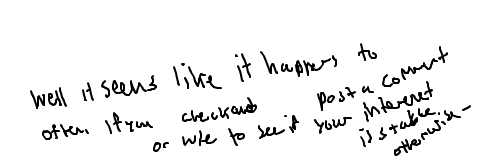 Well it seems like it happens to
often. If you checkand post a comment
or wre to see if your internet
is stable.
otherwise-